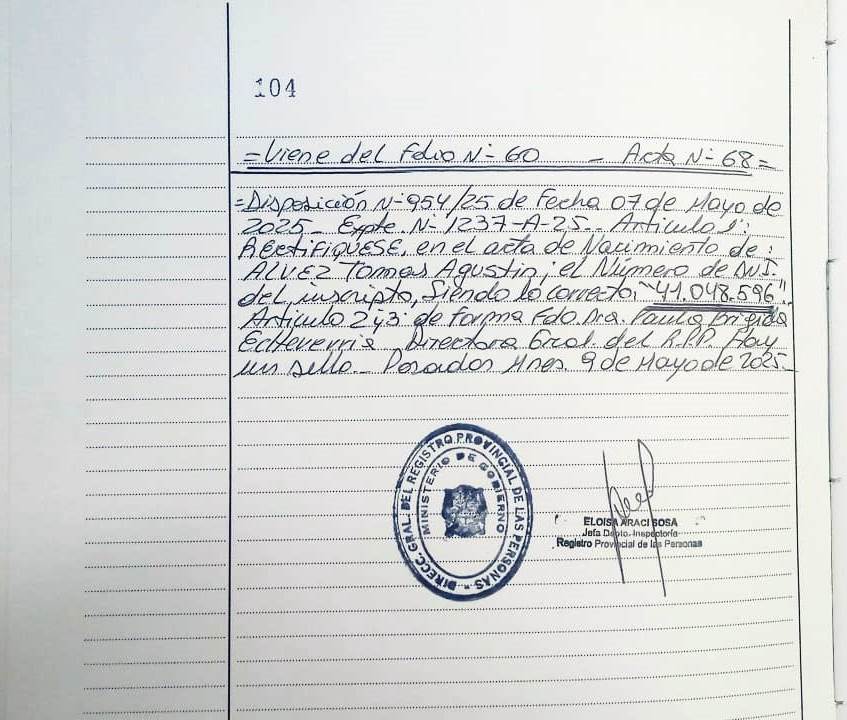 104
=Viene del Folio N- 60 - Acta N- 68=
=Disposición N-954/25 de Fecha 07 de Mayo de
2025- Expte. N- 1237-A-25.- Articulo 1:
RECtiFiQUESE, en el acta de Nacimiento de:
ALVEZ Tomas Agustin; el Número de D.N.I.
del inscripto, Siendo lo correcto, "41.048.596".
Articulo 2y3 de forma Fdo Dra. Paula Brigida
Echeverria Directora Gral. del R.P.P. Hay
un sello.- Posadas Mnes. 9 de Mayo de 2025-
DIRECC. GRAL. DEL REGISTRO PROVINCIAL DE LAS PERSONAS -
MINISTERIO DE GOBIERNO
ELOISA ARACI SOSA
Jefa Dpto. Inspectoría
Registro Provincial de las Personas